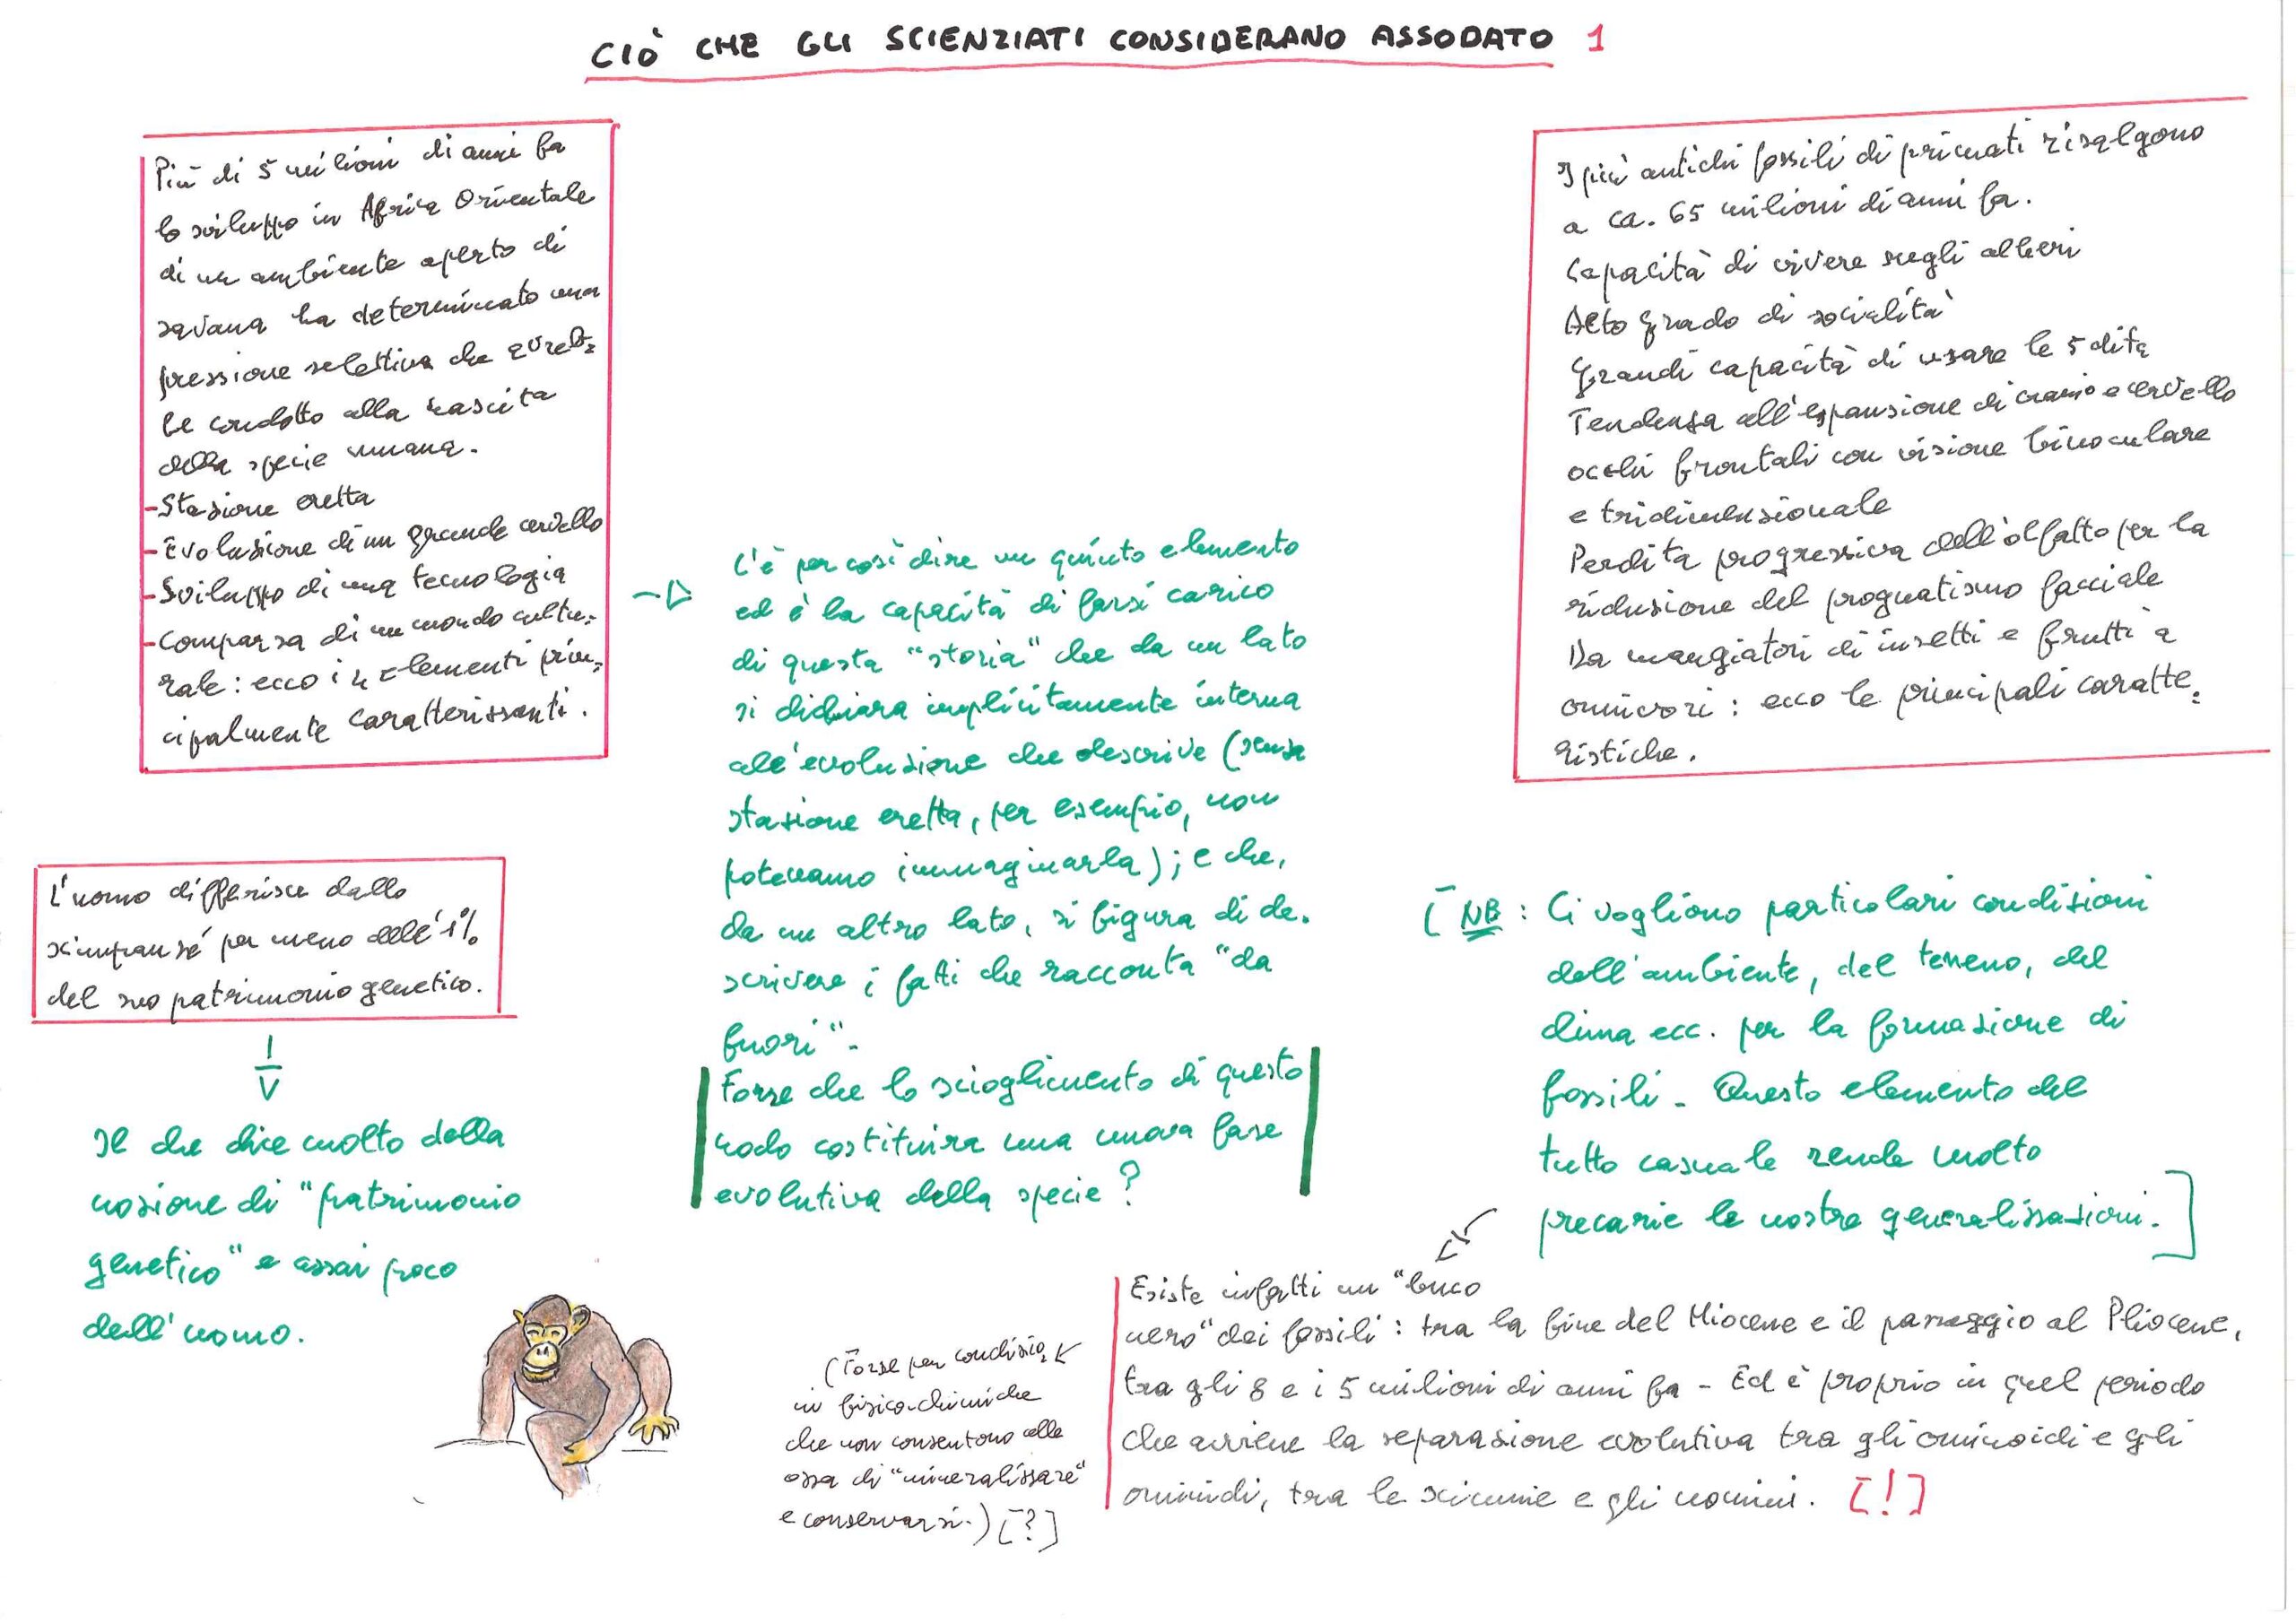 CIÒ CHE GLI SCIENZIATI CONSIDERANO ASSODATO 1
Più di 5 milioni di anni fa
lo sviluppo in Africa Orientale
di un ambiente aperto di
savana ha determinato una
pressione selettiva che avreb=
be condotto alla nascita
della specie umana.
- Stazione eretta
- Evoluzione di un grande cervello
- Sviluppo di una tecnologia
- Comparsa di un mondo cultu=
rale: ecco i 4 elementi prin=
cipalmente caratterizzanti.
L'uomo differisce dallo
scimpanzé per meno dell'1%
del suo patrimonio genetico.
Il che dice molto della
nozione di "patrimonio
genetico" e assai poco
dell'uomo.
C'è per così dire un quinto elemento
ed è la capacità di farsi carico
di questa "storia" che da un lato
si dichiara implicitamente interna
all'evoluzione che descrive (senza
stazione eretta, per esempio, non
potevamo immaginarla); e che,
da un altro lato, si figura di de=
scrivere i fatti che racconta "da
fuori".
Forse che lo scioglimento di questo
nodo costituirà una nuova fase
evolutiva della specie?
I più antichi fossili di primati risalgono
a ca. 65 milioni di anni fa.
Capacità di vivere sugli alberi
Alto grado di socialità
Grandi capacità di usare le 5 dita
Tendenza all'espansione di cranio e cervello
occhi frontali con visione binoculare
e tridimensionale
Perdita progressiva dell'olfatto per la
riduzione del prognatismo facciale
Da mangiatori di insetti e frutti a
onnivori: ecco le principali caratte=
ristiche.
[NB: Ci vogliono particolari condizioni
dell'ambiente, del terreno, del
clima ecc. per la formazione di
fossili. Questo elemento del
tutto casuale rende molto
precarie le nostre generalizzazioni.]
Esiste infatti un "buco
nero" dei fossili: tra la fine del Miocene e il passaggio al Pliocene,
tra gli 8 e i 5 milioni di anni fa - Ed è proprio in quel periodo
che avviene la separazione evolutiva tra gli ominoidi e gli
ominidi, tra le scimmie e gli uomini. [!]
(Forse per condizio=
ni fisico-chimiche
che non consentono alle
ossa di "mineralizzare"
e conservarsi.) [?]